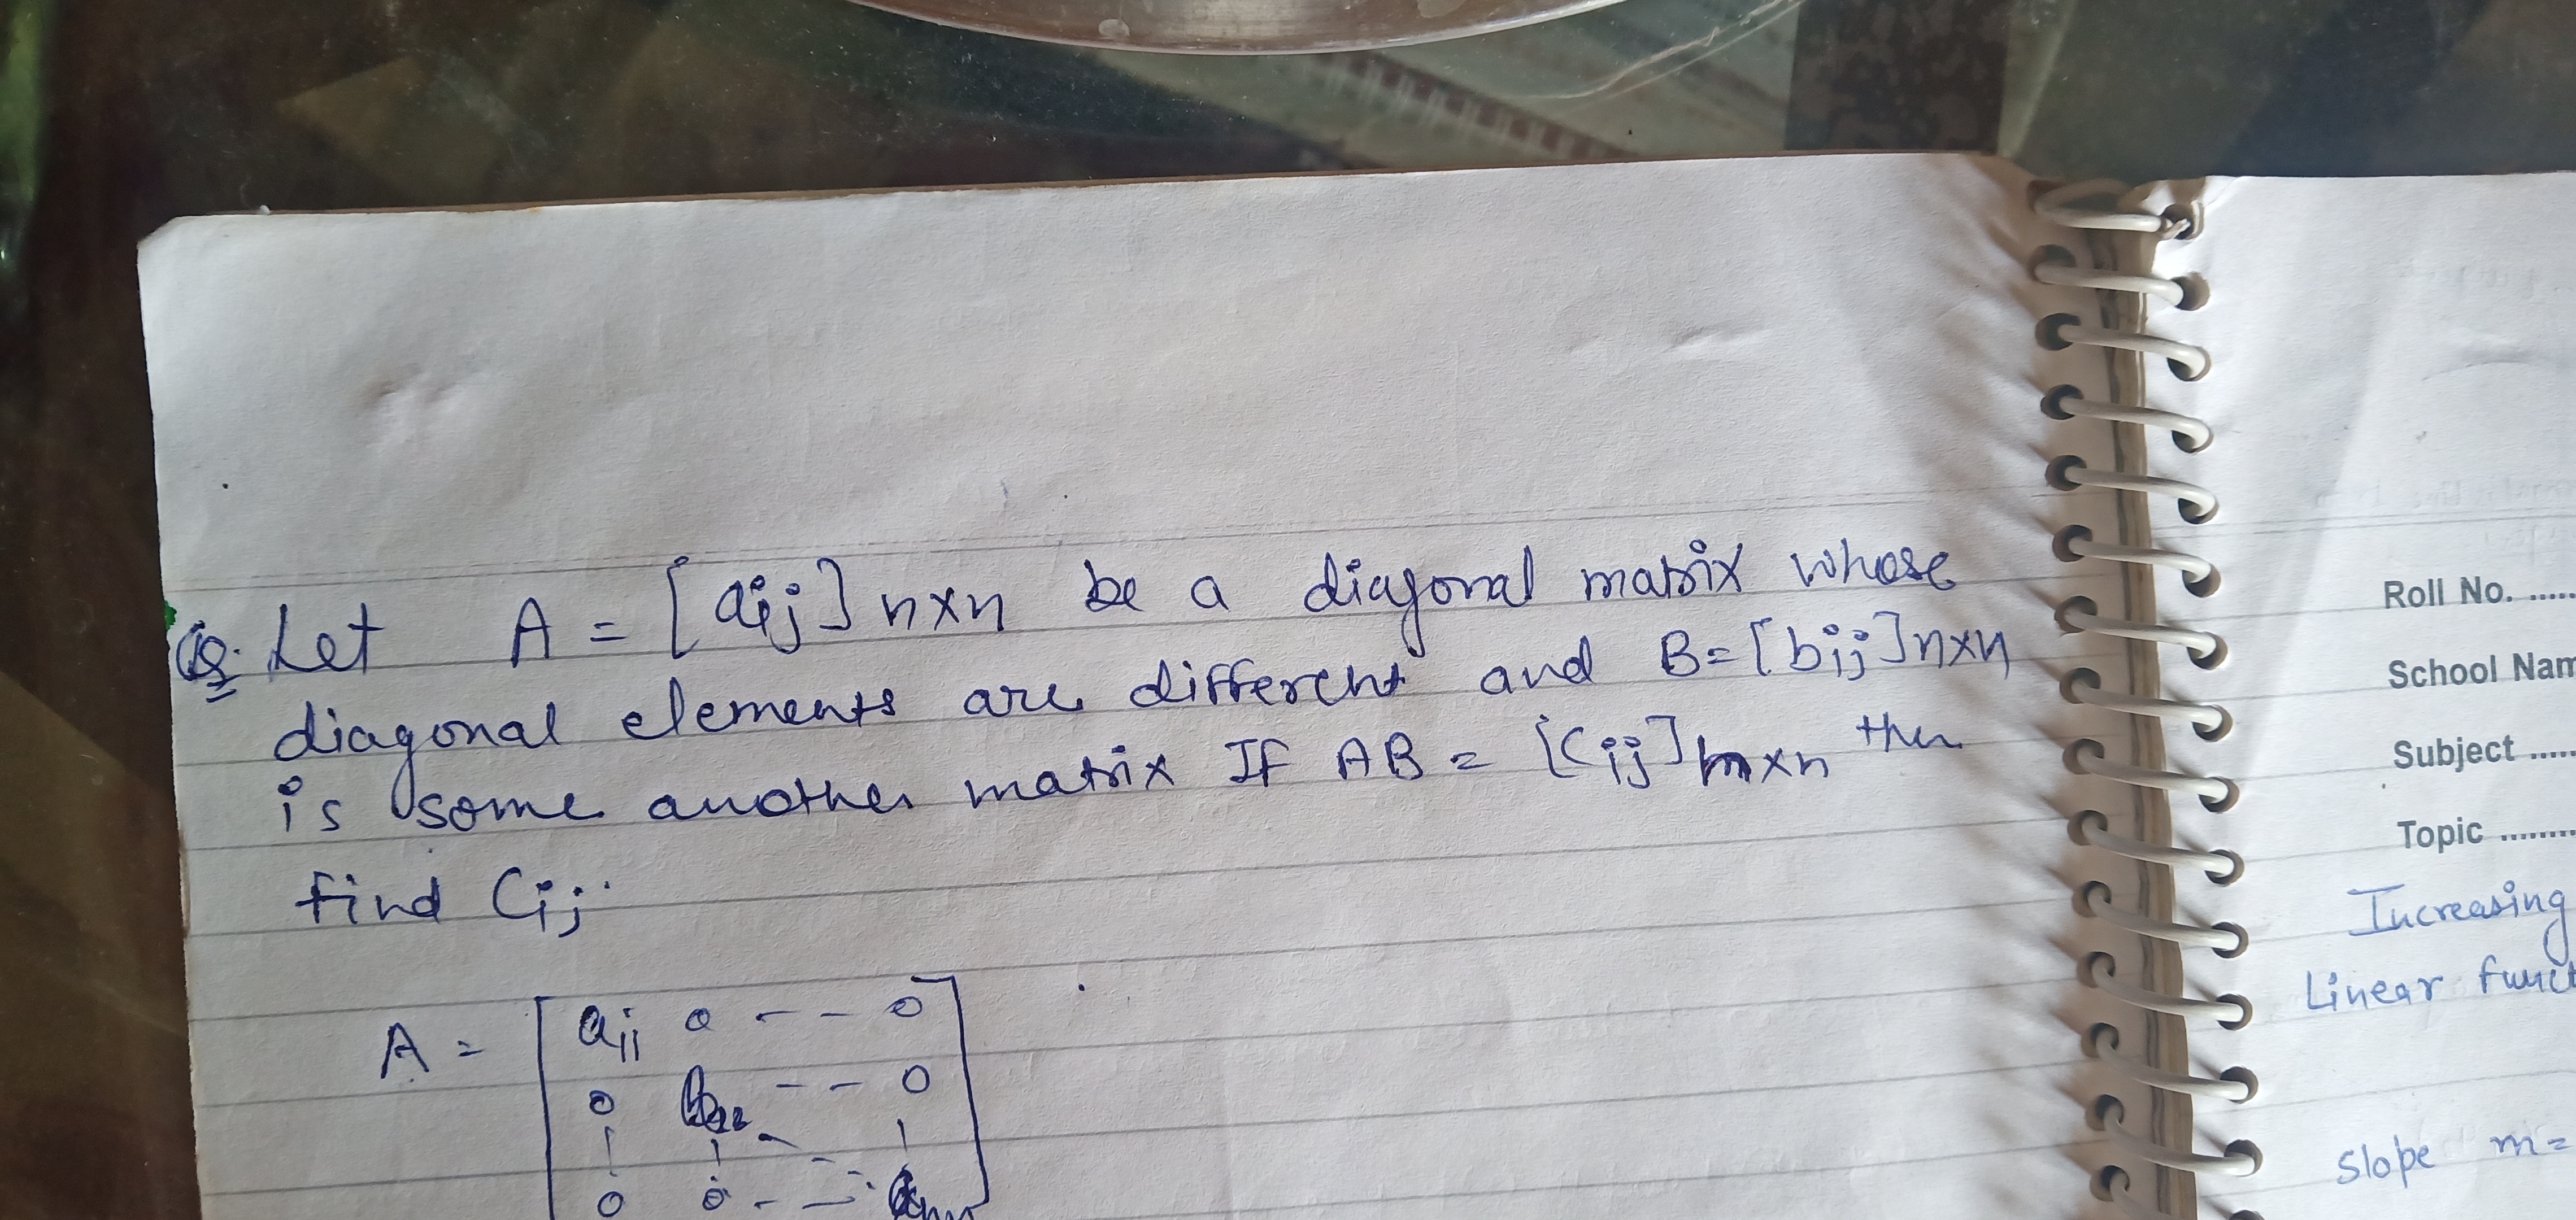 Q. Let A = [aij] n×n be a diagonal matrix whose
diagonal elements are different and B=[bij]n×n
is some another matrix If AB = [Cij]n×n then
find Cij.
A = [ a11 0 - - 0
0 - - 0
0 0 - -
Roll No. .....
School Nam
Subject .....
Topic ........
Increasing
Linear funct
Slope m=